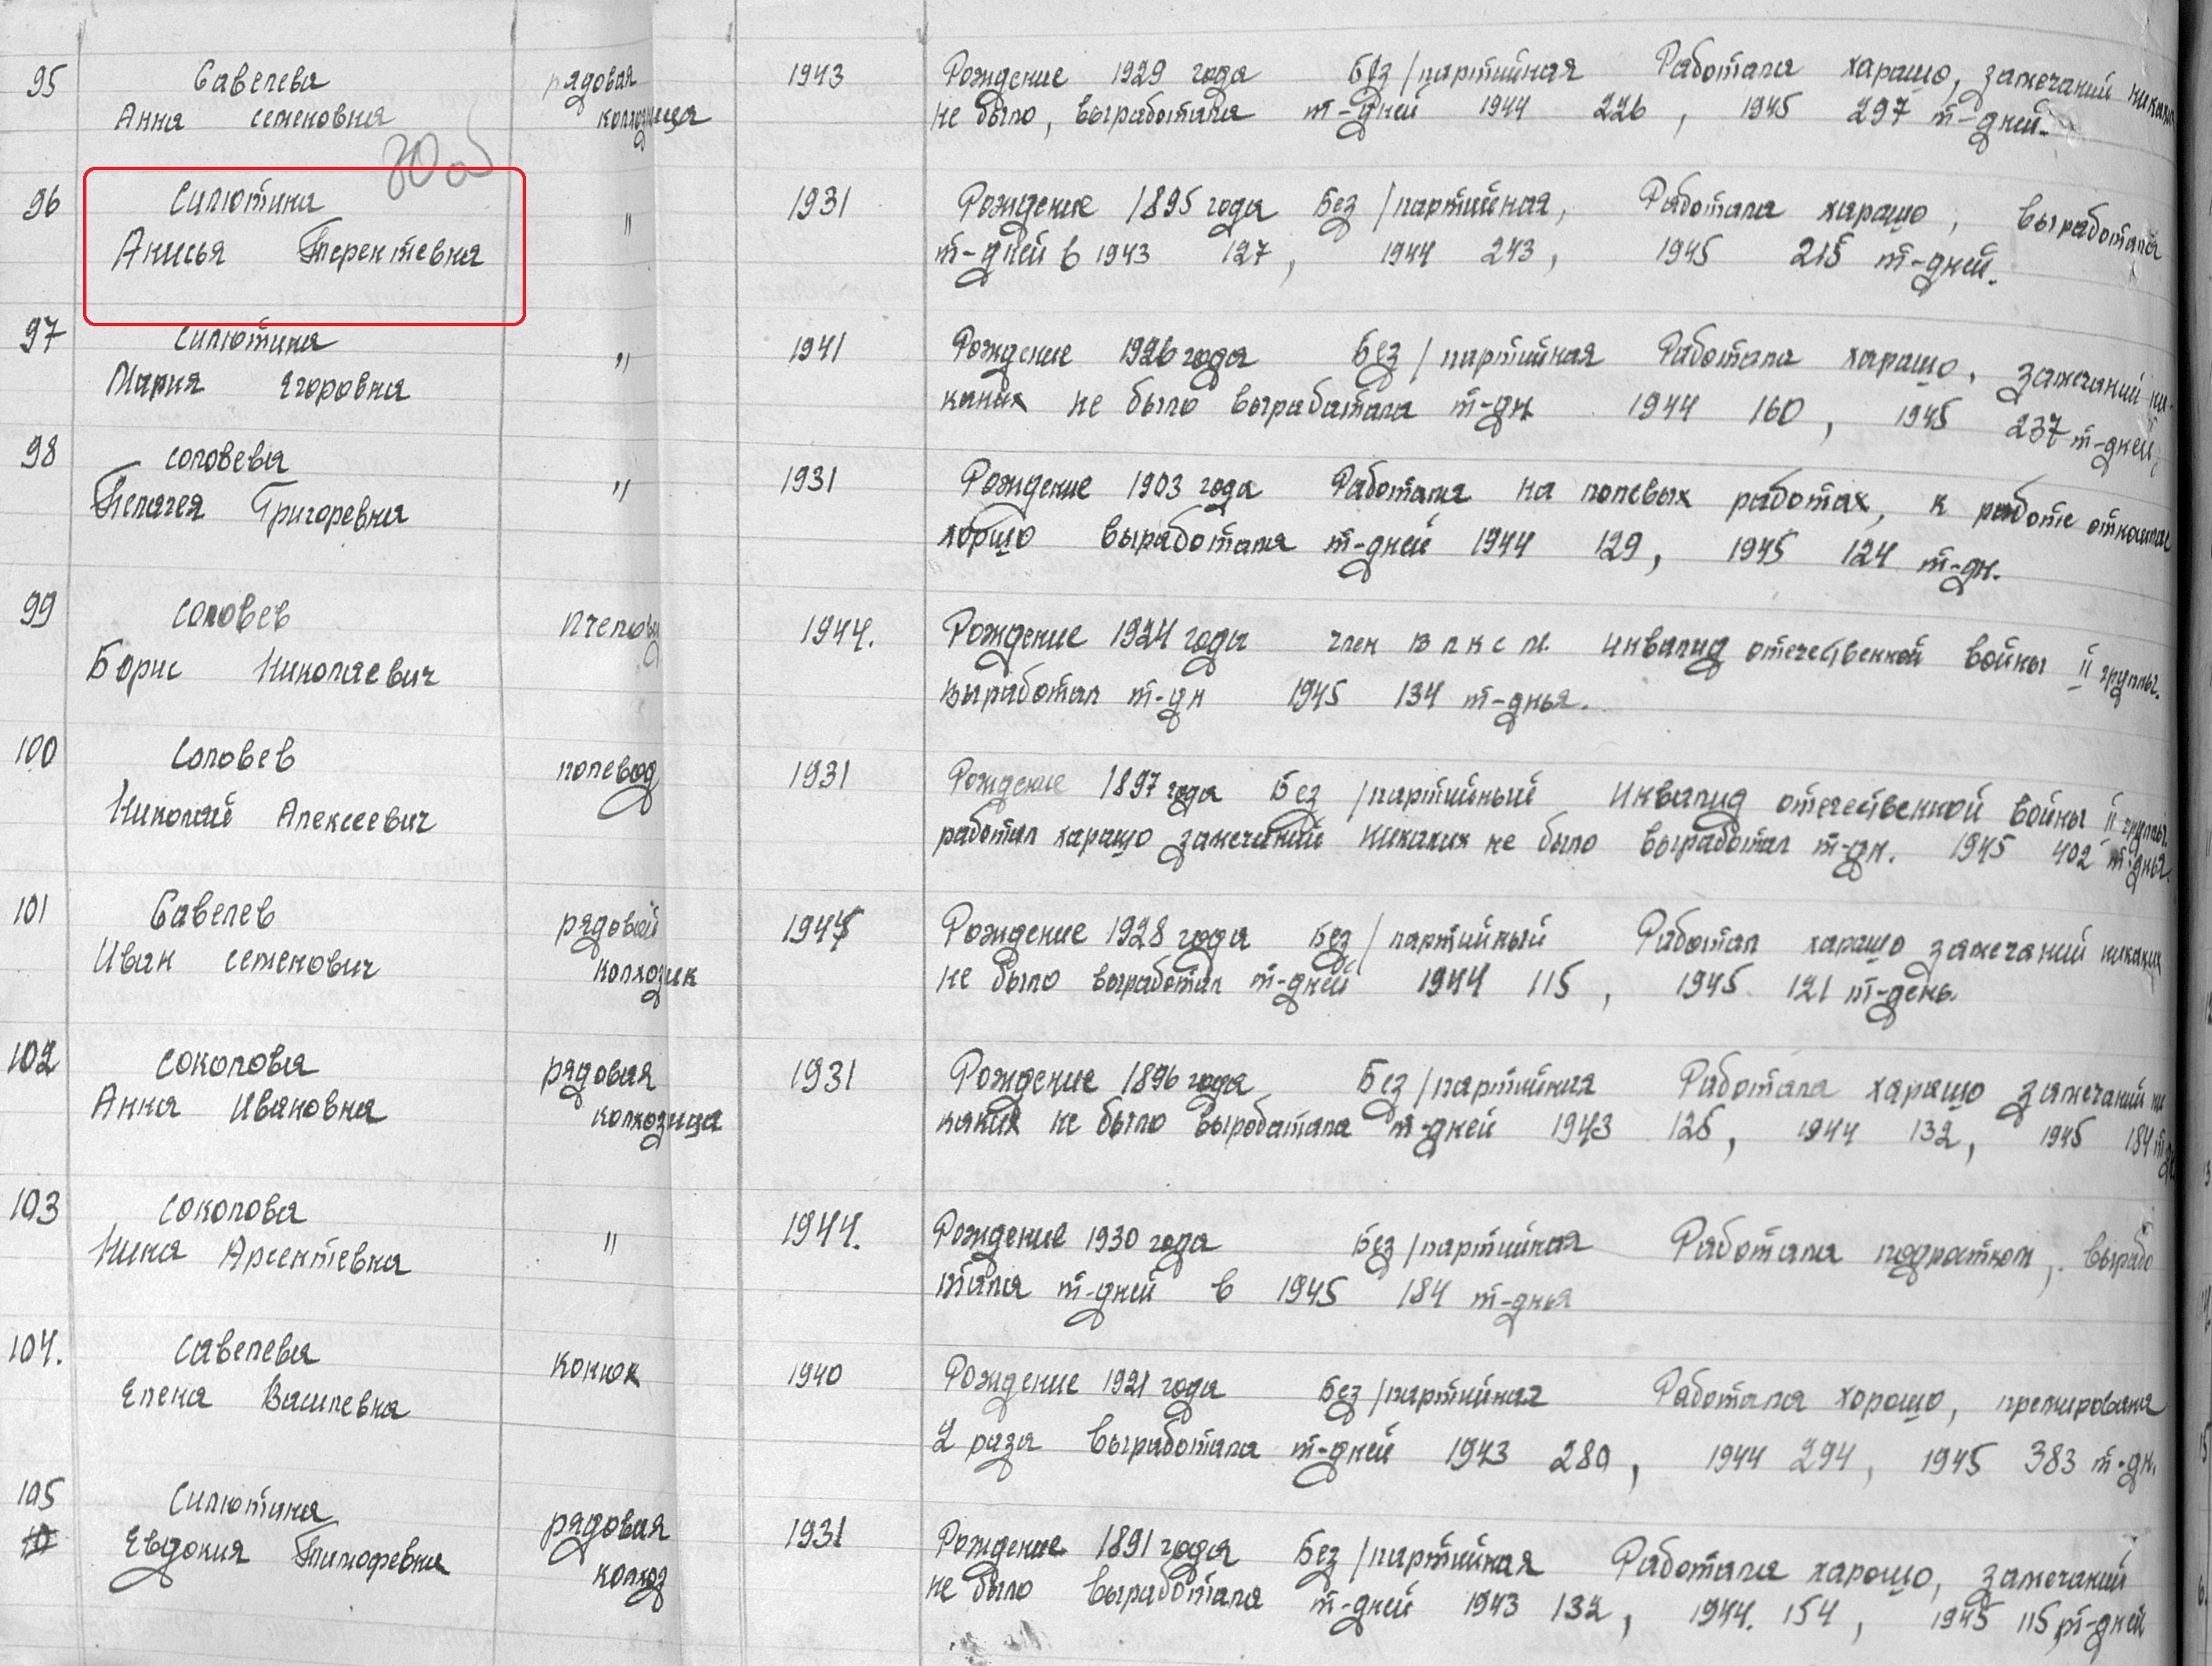 95 Савелева рядовая 1943 Рождение 1929 года Без/партийная Работала харашо, замечаний никаких
Анна семеновна колхозница не было, выработала т-дней 1944 226, 1945 297 т-дней.
30 об
96 Силютина " 1931 Рождение 1895 года Без/партийная, Работала харашо, выработала
Анисья Терентевна т-дней в 1943 127, 1944 243, 1945 215 т-дней.
97 Силютина " 1941 Рождение 1926 года Без/партийная Работала харашо, замечаний ни-
Мария Егоровна каких не было вырабатала т-дн 1944 160, 1945 237 т-дней,
98 соловева " 1931 Рождение 1903 года Работала на полевых работах, к работе относилась
Пелагея Григоревна хоршо выработала т-дней 1944 129, 1945 124 т-дн.
99 соловев пчеловод 1944. Рождение 1924 года член влксм. инвалид отечественной войны II группы.
Борис Николаевич выработал т-дн 1945 134 т-дня.
100 Соловев полевод 1931 Рождение 1897 года Без/партийный инвалид отечественной войны II группы.
Николай Алексеевич работал харашо замечаний никаких не было выработал т-дн. 1945 402 т-дня.
101 Савелев рядовой 1944 Рождение 1928 года Без/партийный Работал харашо замечаний никаких
Иван семенович колхозник не было выработал т-дней 1944 115, 1945 121 т-день.
102 соколова рядовая 1931 Рождение 1896 года Без/партийная Работала харашо замечаний ни
Анна Ивановна колхозница каких не было выробатала т-дней 1943 125, 1944 132, 1945 184 т-дн
103 соколова " 1944. Рождение 1930 года Без/партийная Работала, вырабо
Нина Арсентевна тала т-дней в 1945 184 т-дня
104. савелева конюх 1940 Рождение 1921 года Без/партийная Работала хорошо, премирована
Елена Василевна 2 раза выработала т-дней 1943 280, 1944 294, 1945 383 т-дн.
105 Силютина рядовая 1931 Рождение 1891 года Без/партийная Работала харошо, замечаний
Евдокия Тимофевна колхоз не было выработала т-дней 1943 132, 1944. 154, 1945 115 т-дней